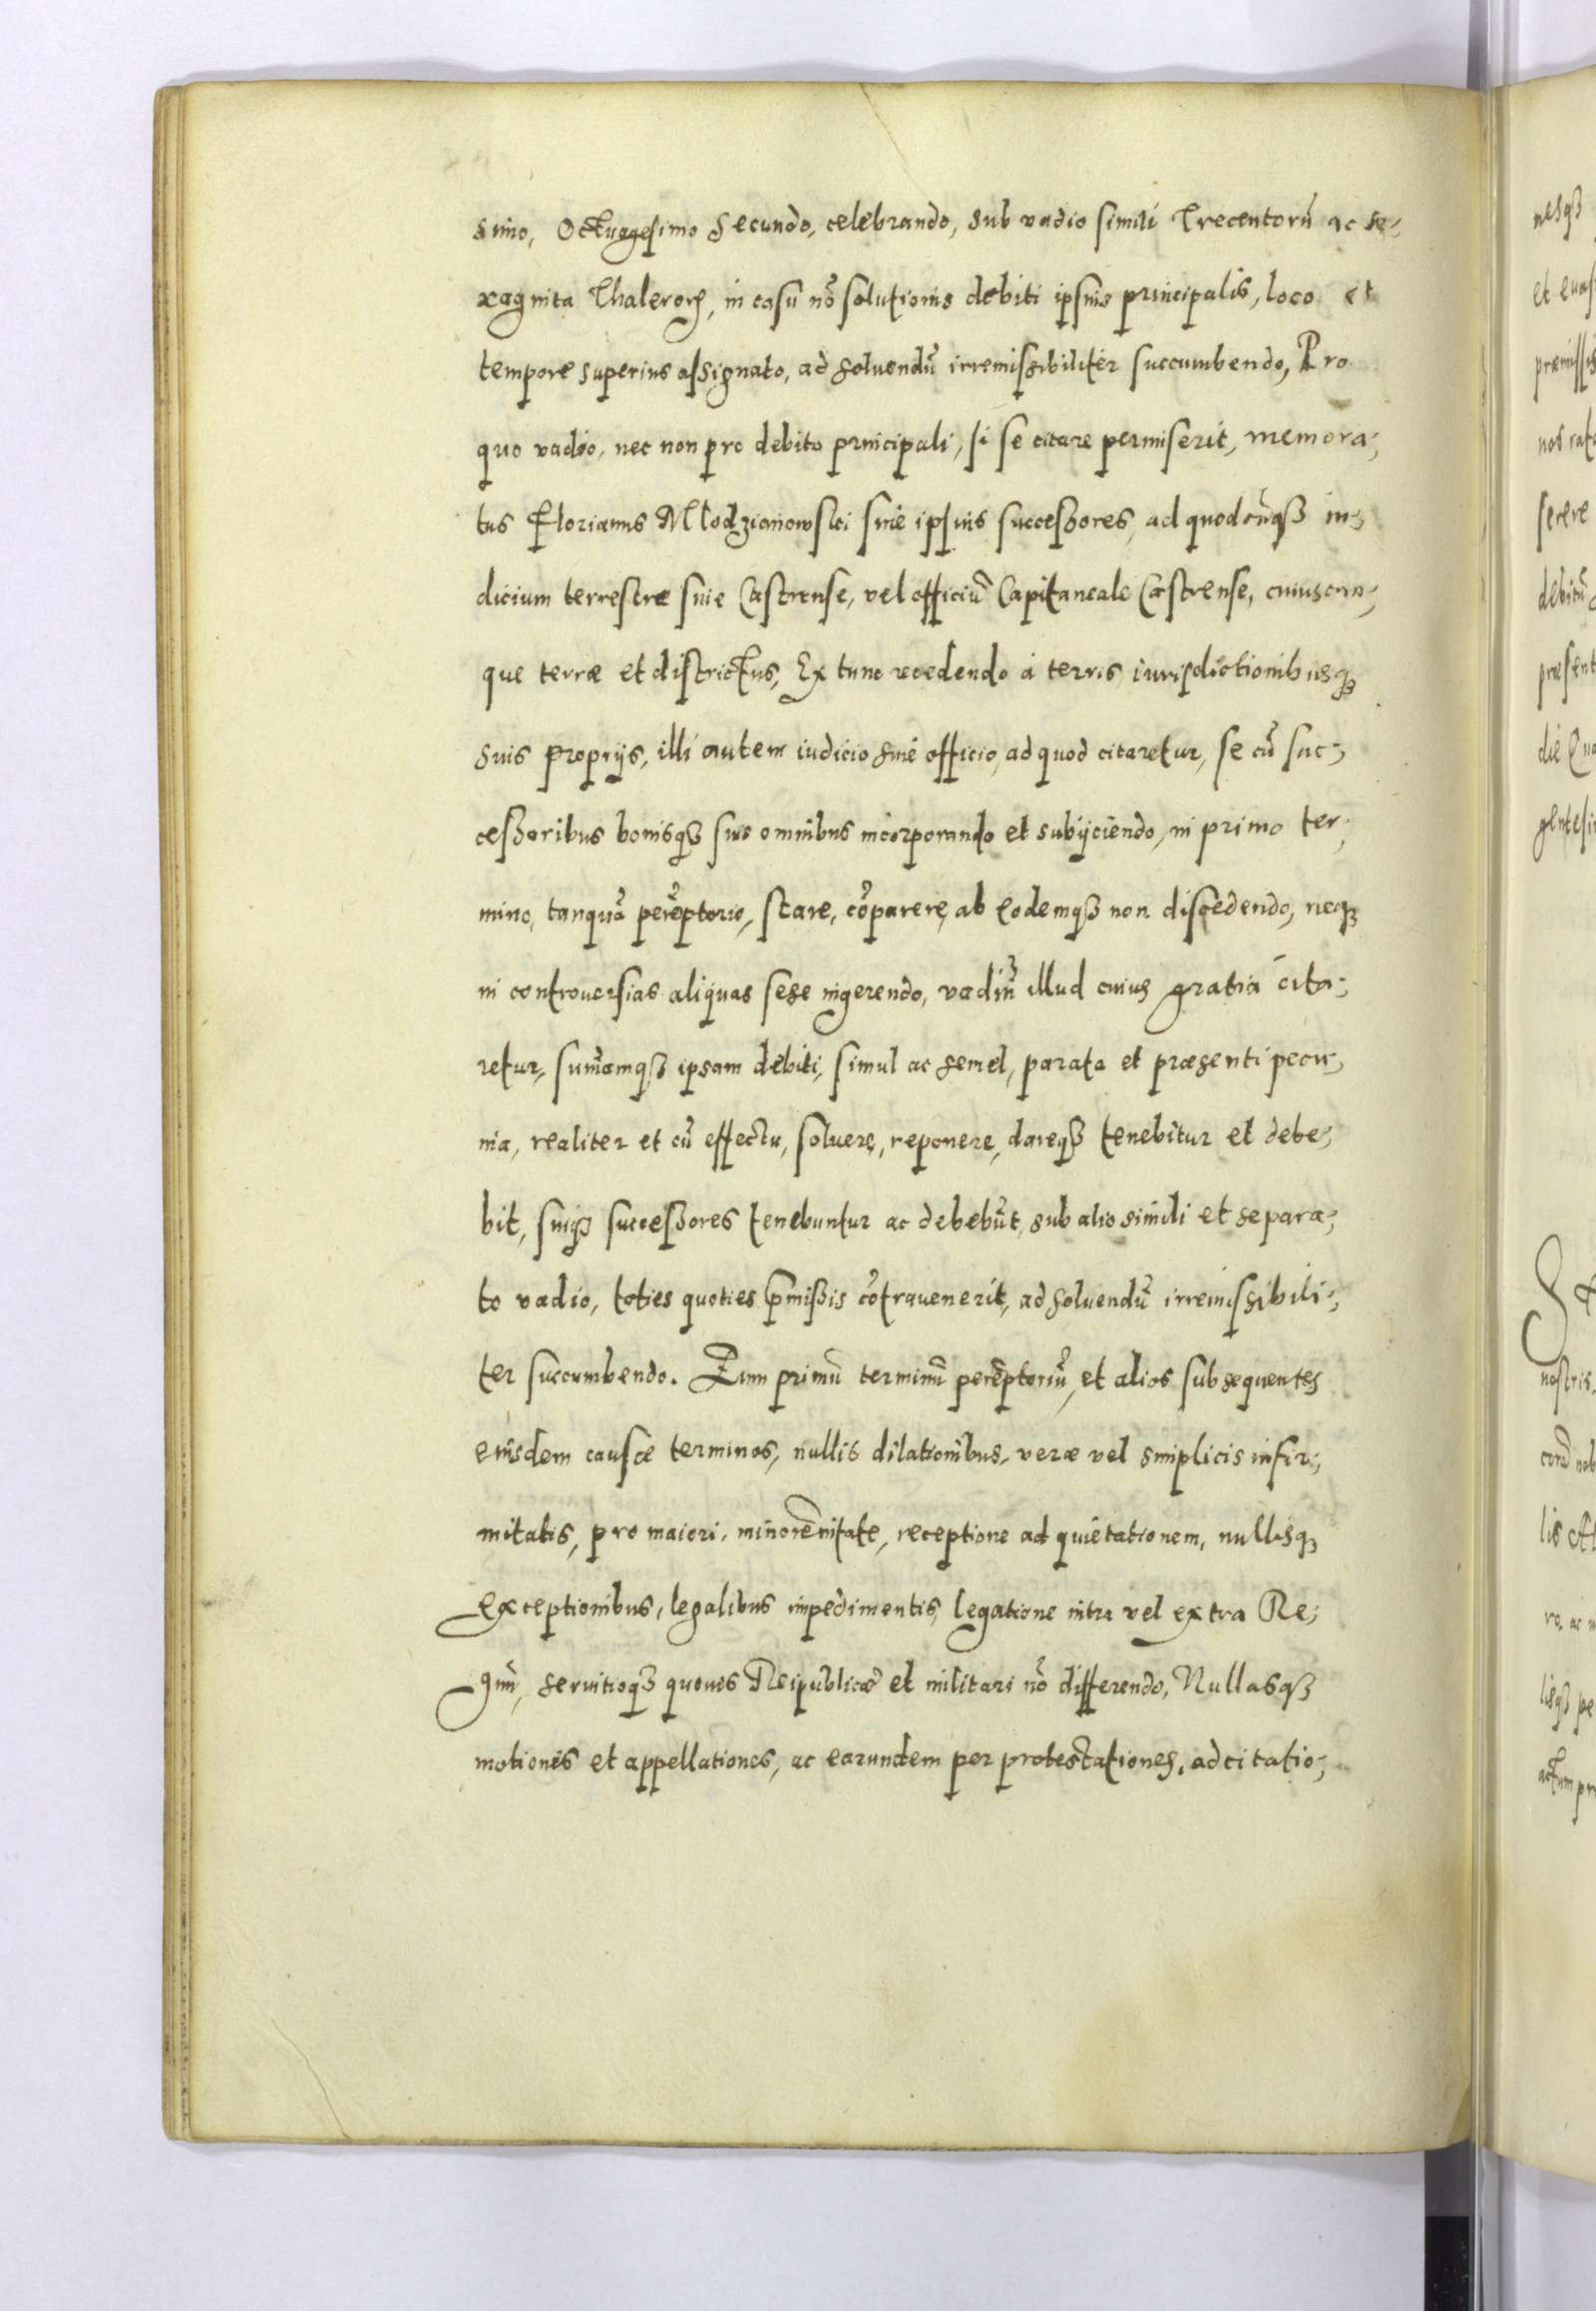 simo, Octuagesimo Secundo, celebrando, sub vadio simili Trecentorũ ac se-
xaginta Thalerorꝝ, in casu nõ solutionis debiti ipsius principalis, loco et
tempore superius assignato, ad soluendũ irremissibiliter succumbendo, Pro
quo vadio, nec non pro debito principali, si se citare permiserit, memora-
tus Florianus Mlodzianowski siue ipsius successores, ad quodcũqꝫ iu-
dicium terrestre siue Castrense, vel officiũ Capitaneale Castrense, cuiuscun-
que terræ et districtus, Ex tunc recedendo à terris iurisdictionibusqꝫ
suis proprijs, illi autem iudicio siue officio, ad quod citaretur, se cũ suc-
cessoribus bonisqꝫ suis omnibus incorporando et subijciendo, in primo ter-
mino, tanquã perẽptorio, stare, cõparere, ab eodemqꝫ non discedendo, neqꝫ
in controuersias aliquas sese ingerendo, vadiũ illud cuius gratia cita-
retur, sum̃amqꝫ ipsam debiti, simul ac semel, parata et præsenti pecu-
nia, realiter et cũ effectu, soluere, reponere, dareqꝫ tenebitur et debe-
bit, suiqꝫ successores tenebuntur ac debebũt, sub alio simili et separa-
to vadio, toties quoties p̃missis cõtrauenerit, ad soluendũ irremissibili-
ter succumbendo. Eum primũ terminũ perẽptoriũ, et alios subsequentes
eiusdem causæ terminos, nullis dilationibus, veræ vel simplicis infir-
mitatis, pro maiori, minorẽnitate, receptione ad quietationem, nullisqꝫ
exceptionibus, legalibus impedimentis, legatione intra vel extra Re-
gnũ, seruitioqꝫ quouis Reipublicæ et militari nõ differendo, Nullasqꝫ
motiones et appellationes, ac earundem per protestationes, ad citatio-
nesqꝫ
præmissis
nostris,